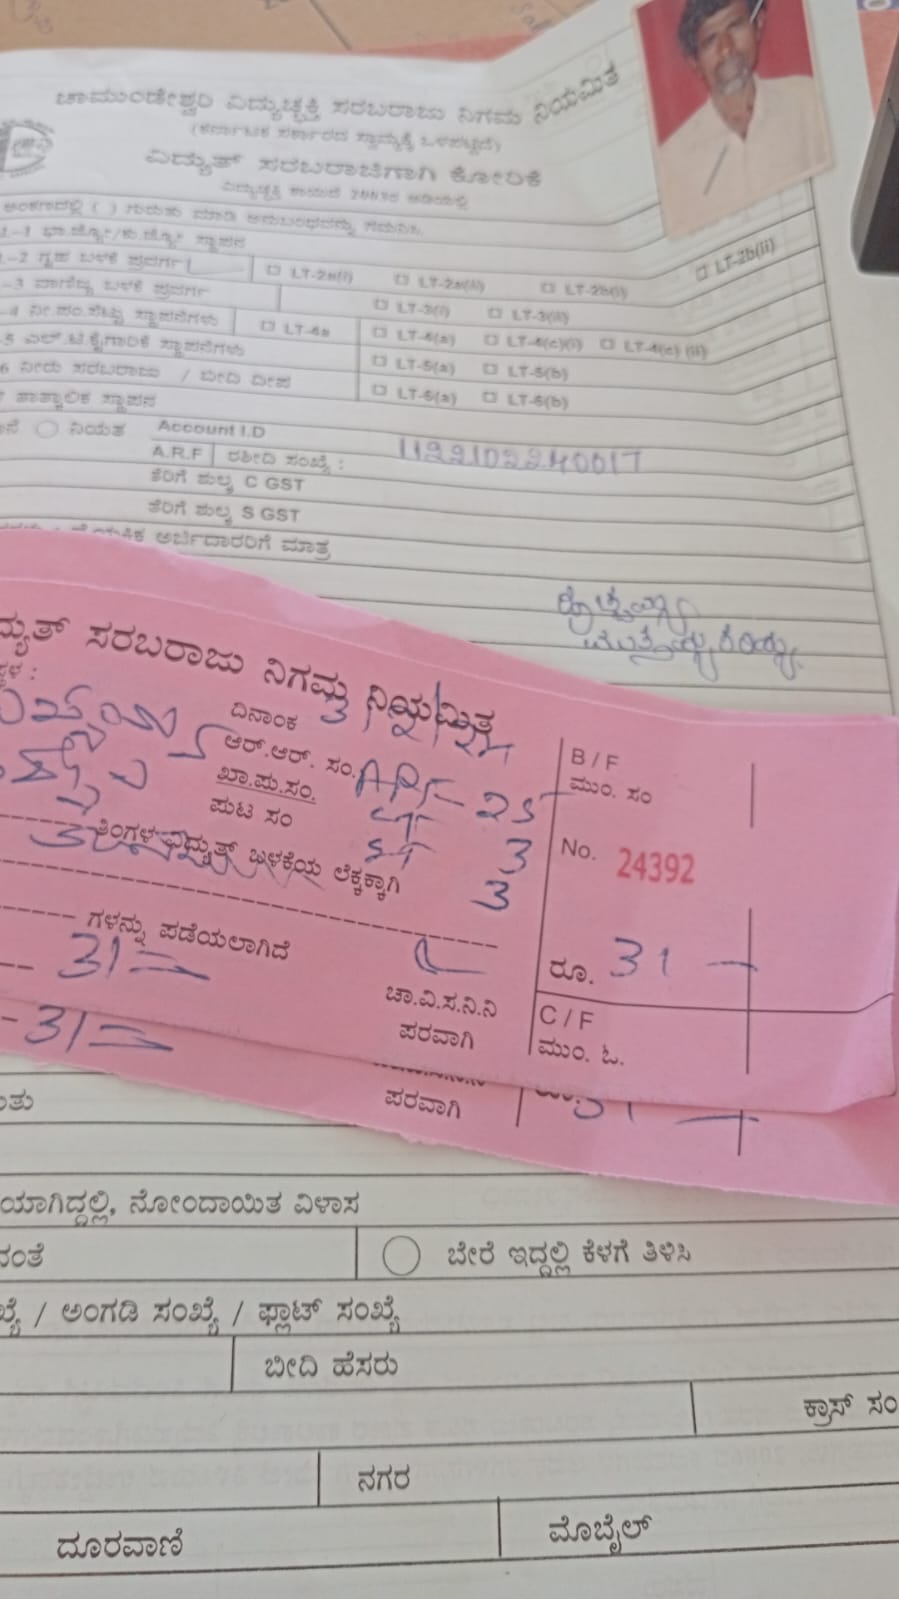 ಚಾಮುಂಡೇಶ್ವರಿ ವಿದ್ಯುಚ್ಛಕ್ತಿ ಸರಬರಾಜು ನಿಗಮ ನಿಯಮಿತ
(ಕರ್ನಾಟಕ ಸರ್ಕಾರದ ಸ್ವಾಮ್ಯಕ್ಕೆ ಒಳಪಟ್ಟಿದೆ)
ವಿದ್ಯುತ್ ಸರಬರಾಜಿಗಾಗಿ ಕೋರಿಕೆ
ವಿದ್ಯುಚ್ಛಕ್ತಿ ಕಾಯಿದೆ 2003ರ ಅಡಿಯಲ್ಲಿ
ಅಂಕಣದಲ್ಲಿ ( ) ಗುರುತು ಮಾಡಿ ಅನುಬಂಧವನ್ನು ಗಮನಿಸಿ.
-1 ಭಾ.ಜ್ಯೋ/ಕು.ಜ್ಯೋ ಸ್ಥಾಪನ
-2 ಗೃಹ ಬಳಕೆ ಪ್ರವರ್ಗ LT-2a(i) LT-2a(ii) LT-2b(i) LT-2b(ii)
-3 ವಾಣಿಜ್ಯ ಬಳಕೆ ಪ್ರವರ್ಗ LT-3(i) LT-3(ii)
-4 ನೀ.ಪಂ.ಸೆಟ್ಟು ಸ್ಥಾಪನೆಗಳು LT-4a LT-4(c)(i) LT-4(c) (ii)
-5 ಎಲ್.ಟಿ.ಕೈಗಾರಿಕೆ ಸ್ಥಾಪನೆಗಳು LT-5(a) LT-5(b)
6 ನೀರು ಸರಬರಾಜು / ಬೀದಿ ದೀಪ LT-6(a) LT-6(b)
7 ತಾತ್ಕಾಲಿಕ ಸ್ಥಾಪನ
ನಿಯತ Account I.D
A.R.F ರಶೀದಿ ಸಂಖ್ಯೆ : 1122102240017
ತೆರಿಗೆ ಶುಲ್ಕ C GST
ತೆರಿಗೆ ಶುಲ್ಕ S GST
ಅರ್ಜಿದಾರರಿಗೆ ಮಾತ್ರ
ದ್ಯುತ್ ಸರಬರಾಜು ನಿಗಮ ನಿಯಮಿತ
ದಿನಾಂಕ
ಆರ್.ಆರ್. ಸಂ. ARF- 25
ಖಾ.ಪು.ಸಂ. CT 3
ಪುಟ ಸಂ ST 3
ತಿಂಗಳ ವಿದ್ಯುತ್ ಬಳಕೆಯ ಲೆಕ್ಕಕ್ಕಾಗಿ
ಗಳನ್ನು ಪಡೆಯಲಾಗಿದೆ
31=
ಚಾ.ವಿ.ಸ.ನಿ.ನಿ
ಪರವಾಗಿ
31=
B / F
ಮುಂ. ಸಂ
No. 24392
ರೂ. 31
C / F
ಮುಂ. ಓ.
ಪರವಾಗಿ
31
ಯಾಗಿದ್ದಲ್ಲಿ, ನೋಂದಾಯಿತ ವಿಳಾಸ
ದಂತೆ ಬೇರೆ ಇದ್ದಲ್ಲಿ ಕೆಳಗೆ ತಿಳಿಸಿ
ಖ್ಯೆ / ಅಂಗಡಿ ಸಂಖ್ಯೆ / ಫ್ಲಾಟ್ ಸಂಖ್ಯೆ
ಬೀದಿ ಹೆಸರು
ಕ್ರಾಸ್ ಸಂ
ನಗರ
ದೂರವಾಣಿ ಮೊಬೈಲ್